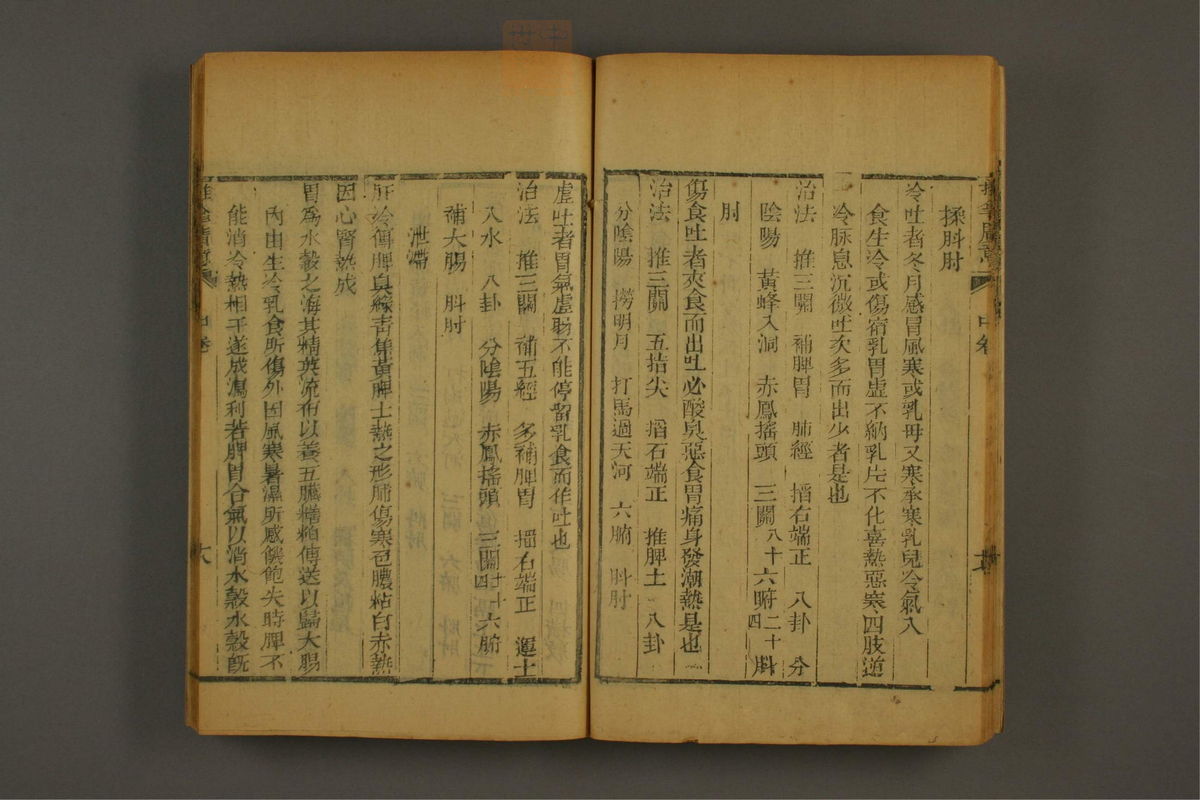 揉䏔肘
冷吐者冬月感冒風寒或乳母又寒承寒乳兒冷氣入
食生冷或傷宿乳胃虛不納乳片不化喜熱惡寒四肢逆
冷脉息沉微吐次多而出少者是也
治法 推三關 補脾胃 肺經 掐右端正 八卦 分
陰陽 黃蜂入洞 赤鳳搖頭 三關八十六腑二十四䏔
肘
傷食吐者夾食而出吐必酸臭惡食胃痛身發潮熱是也
治法 推三關 五指尖 掐右端正 推脾土 八卦
分陰陽 撈明月 打馬過天河 六腑 䏔肘
虛吐者胃氣虛弱不能停留乳食而作吐也
治法 推三關 補五經 多補脾胃 掐右端正 運土
入水 八卦 分陰陽 赤鳳搖頭 三關 六腑
補大腸 䏔肘
泄瀉
肝冷傷脾臭綠青焦黃脾土熱之形肺傷寒色膿粘白赤熱
因心腎熱成
胃爲水榖之海其精英流布以養五臟糟粕傳送以歸大腸
內由生冷乳食所傷外因風寒暑濕所感饑飽失時脾不
能消冷熱相干遂成瀉利若脾胃合氣以消水榖水榖旣
中卷